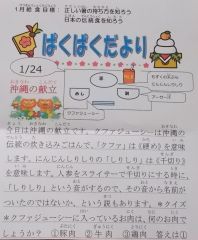 1月給食目標：正しい箸の持ち方を知ろう
日本の伝統食を知ろう
ぱくぱくだより
1/24
沖縄の献立
もずくの天ぷら
にんじんしりしり
めし
アーサー汁
クファジューシー
今日は沖縄の献立です。クファジューシーは沖縄の
伝統の炊き込みごはんで、「クファ」は《硬め》を意味し
ます。にんじんしりしりの「しりしり」は《千切り》
を意味します。人参をスライサーで千切りにする時に、
「しりしり」という音がするので、その音から名前が
ついたのではないか、という説もあります。※クイズ
※クファジューシーに入っているお肉は、何のお肉で
しょうか？ ①豚肉 ②牛肉 ③鶏肉 答えは①